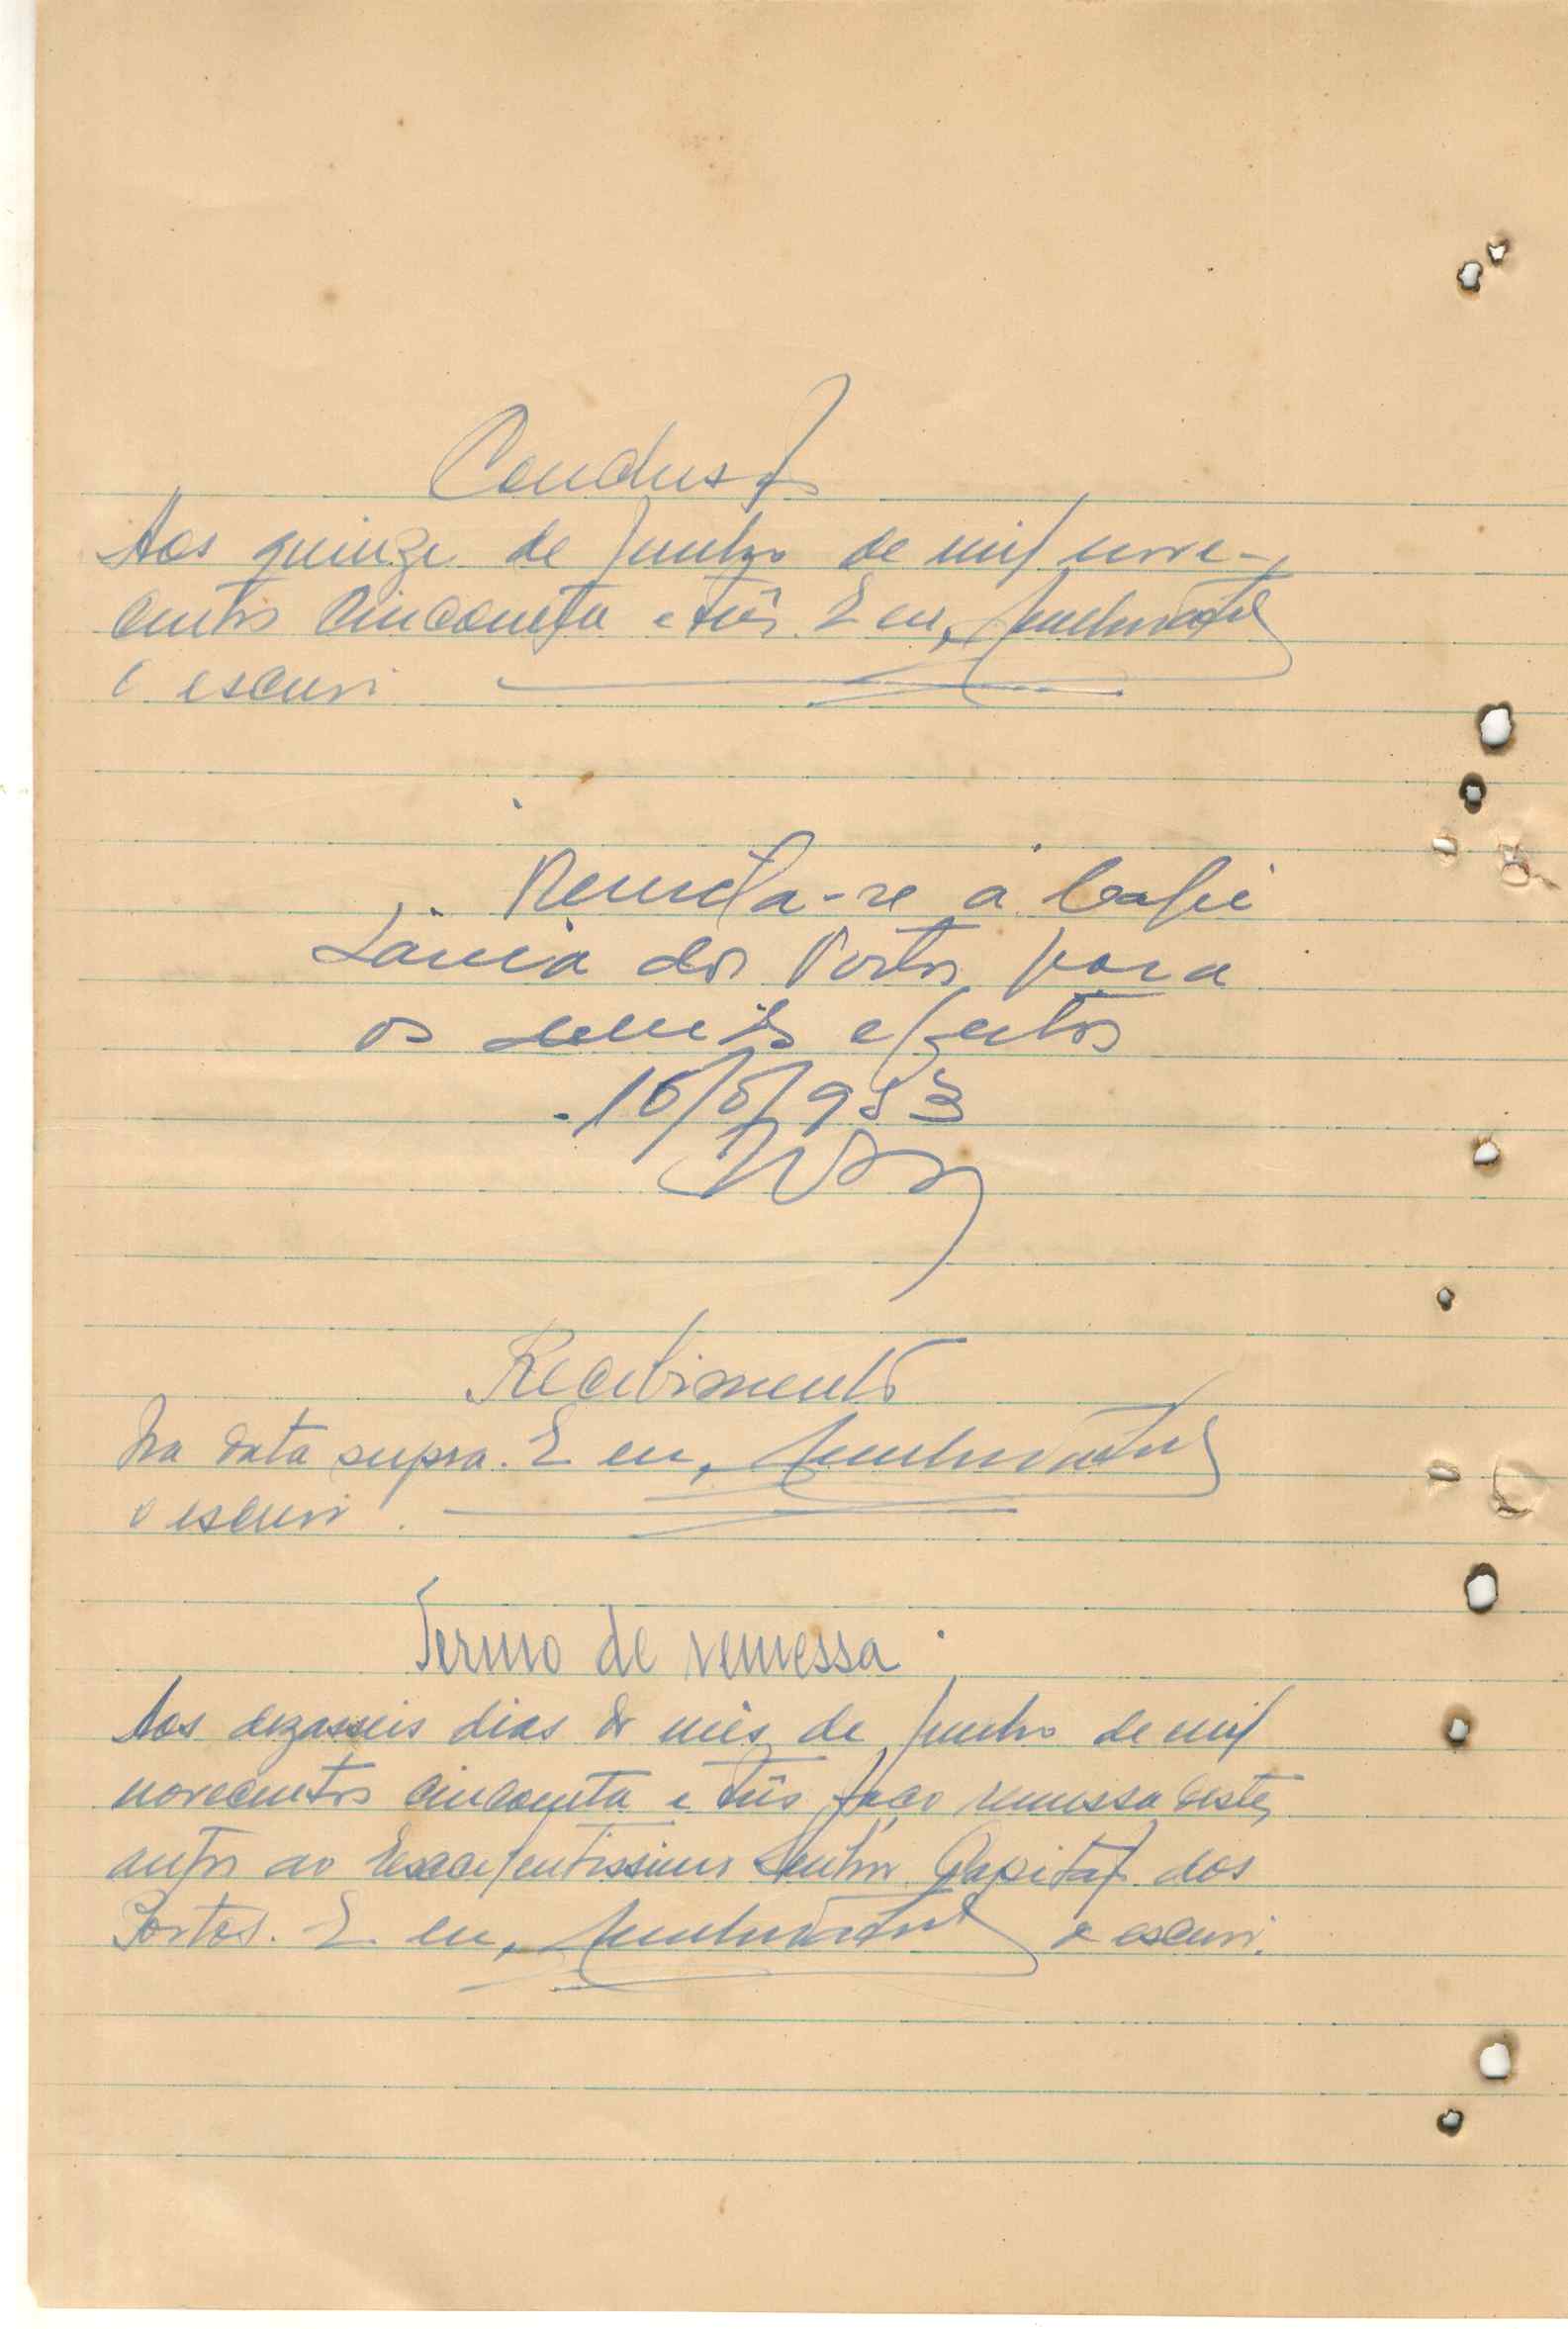 Conclusão
Aos quinze de Junho de mil nove-
centos cincoenta e três. E eu,
o escrevi
Remeta-se à Capi
tania dos Portos para
os demais efeitos
16/6/953
Recebimento
Na data supra. E eu,
o escrevi
Termo de remessa
Aos dezasseis dias do mês de Junho de mil
novecentos cincoenta e três faço remessa destes
autos ao Excelentissimo Senhor Capitão dos
Portos. E eu, o escrevi.